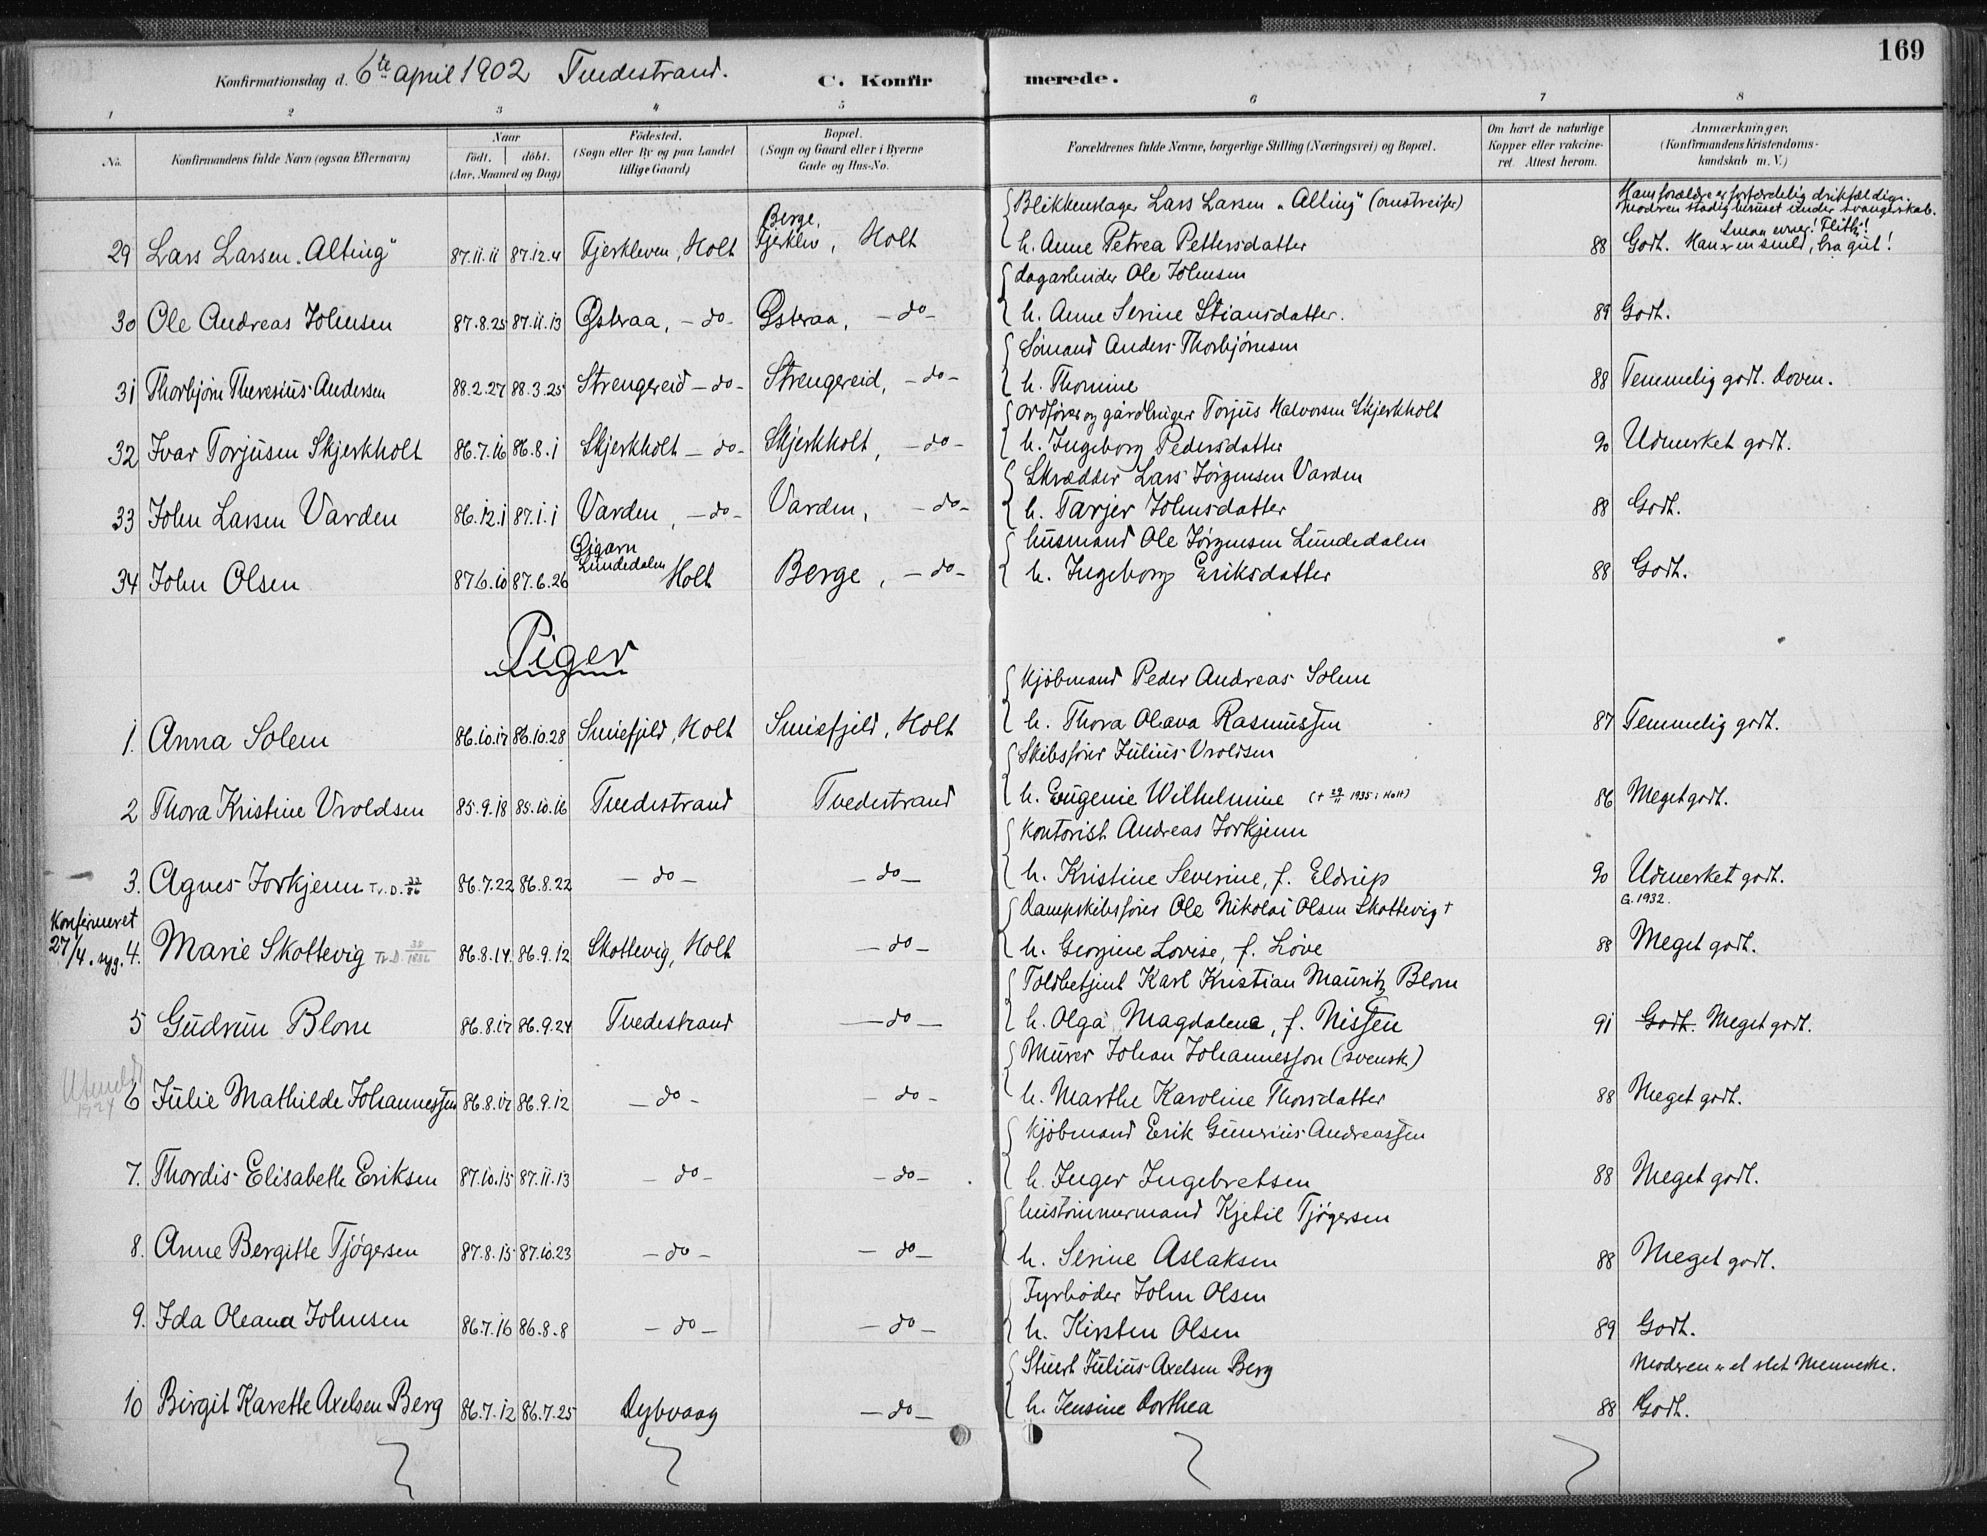 169
Konfirmationsdag d. 6te april 1902 Tvedestrand.
C. Konfirmerede.
1 2 3 4 5 6 7 8
No. Konfirmandens fulde Navn (ogsaa Efternavn) Naar födt. döbt. (Aar, Maaned og Dag) Födested. (Sogn eller By og paa Landet tillige Gaard) Bopæl. (Sogn og Gaard eller i Byerne Gade og Hus-No. Forældrenes fulde Navne, borgerlige Stilling (Næringsvei) og Bopæl. Om havt de naturlige Kopper eller vakcineret. Attest herom. Anmærkninger, (Konfirmandens Kristendomskundskab m. V.)
Blikkenslager Lars Larsen "Alting" (omstreifer) Hans forældre er forfærdelig drikfældige. Moderen stadig beruset under svangerskab.
29 Lars Larsen "Alting" 87.11.11 87.12.4 Fjerkleven, Holt Berge, Fjerklev, Holt h. Anne Petrea Pettersdatter 88 Godt. Smaa evner! Flittig! Han er en snild, bra gut!
dagarbeider Ole Johnsen
30 Ole Andreas Johnsen 87.8.25 87.11.13 Østeraa, - do - Østeraa, - do - h. Anne Serine Stiansdatter. 89 Godt.
Sømand Anders Thorbjørnsen
31 Thorbjørn Theresius Andersen 88.2.27 88.3.25 Strengereid - do - Strengereid, - do - h. Thomine 88 Temmelig godt. Doven.
Ordfører og gårdbruger Torjus Halvorsen Skjerkholt
32 Ivar Torjusen Skjerkholt 86.7.16 86.8.1 Skjerkholt - do - Skjerkholt, - do - h. Ingeborg Pedersdatter 90 Udmerket godt.
Skrædder Lars Jørgensen Varden
33 John Larsen Varden 86.12.1 87.1.1 Varden, - do - Varden, - do - h. Tarjer Johnsdatter 88 Godt.
husmand Ole Jørgensen Lundedalen
34 John Olsen 87.6.10 87.6.26 Lundedalen Holt Berge, - do - h. Ingeborg Eriksdatter 88 Godt.
Piger
Kjöbmand Peder Andreas Solem
1. Anna Solem 86.10.17 86.10.28 Smiefjeld, Holt Smiefjeld, Holt h. Thora Olava Rasmussen 87 Temmelig godt.
Skibsfører Julius Vroldsen
2 Thora Kristine Vroldsen 85.9.18 85.10.16 Tvedestrand Tvedestrand h. Eugenie Wilhelmine (+ 29/11 1935 i Holt) 86 Meget godt.
Kontorist Andreas Jorkjenn
3. Agnes Jorkjenn Tv.D. 33/86 86.7.22 86.8.22 - do - - do - h. Kristine Severine, f. Eldrup 90 Udmerket godt.
Konfirmeret Dampskibsfører Ole Nikolai Olsen Skottevig + G. 1932.
27/4. syg. 4. Marie Skottevig Tv.D. 86.8.14. 86.9.12 Skottevig, Holt - do - h. Georgine Lovise, f. Löve 88 Meget godt.
Toldbetjent Karl Kristian Mauritz Blom
5 Gudrun Blom 86.8.17 86.9.24 Tvedestrand - do - h. Olga Magdalene, f. Nissen 91 Godt. Meget godt.
Murer Johan Johannesson (svensk)
Utmeldt 1924 6 Julie Mathilde Johannessen 86.8.17 86.9.12 - do - - do - h. Marthe Karoline Thorsdatter 88 Meget godt.
Kjöbmand Erik Gunerius Andreassen
7. Thordis Elisabeth Eriksen 87.10.15 87.11.13 - do - - do - h. Inger Ingebretsen 88 Meget godt.
hustömmermand Kjetil Tjøgersen
8. Anne Bergitte Tjøgersen 87.8.15 87.10.23 - do - - do - h. Serine Aslaksen 88 Meget godt.
Fyrböder John Olsen
9. Ida Oleana Johnsen 86.7.16 86.8.8 - do - - do - h. Kirsten Olsen 89 Godt.
Stuert Julius Axelsen Berg Moderen er et slet Menneske.
10 Birgit Karette Axelsen Berg 86.7.12 86.7.25 Dybvaag - do - h. Jensine Dorthea 88 Godt.